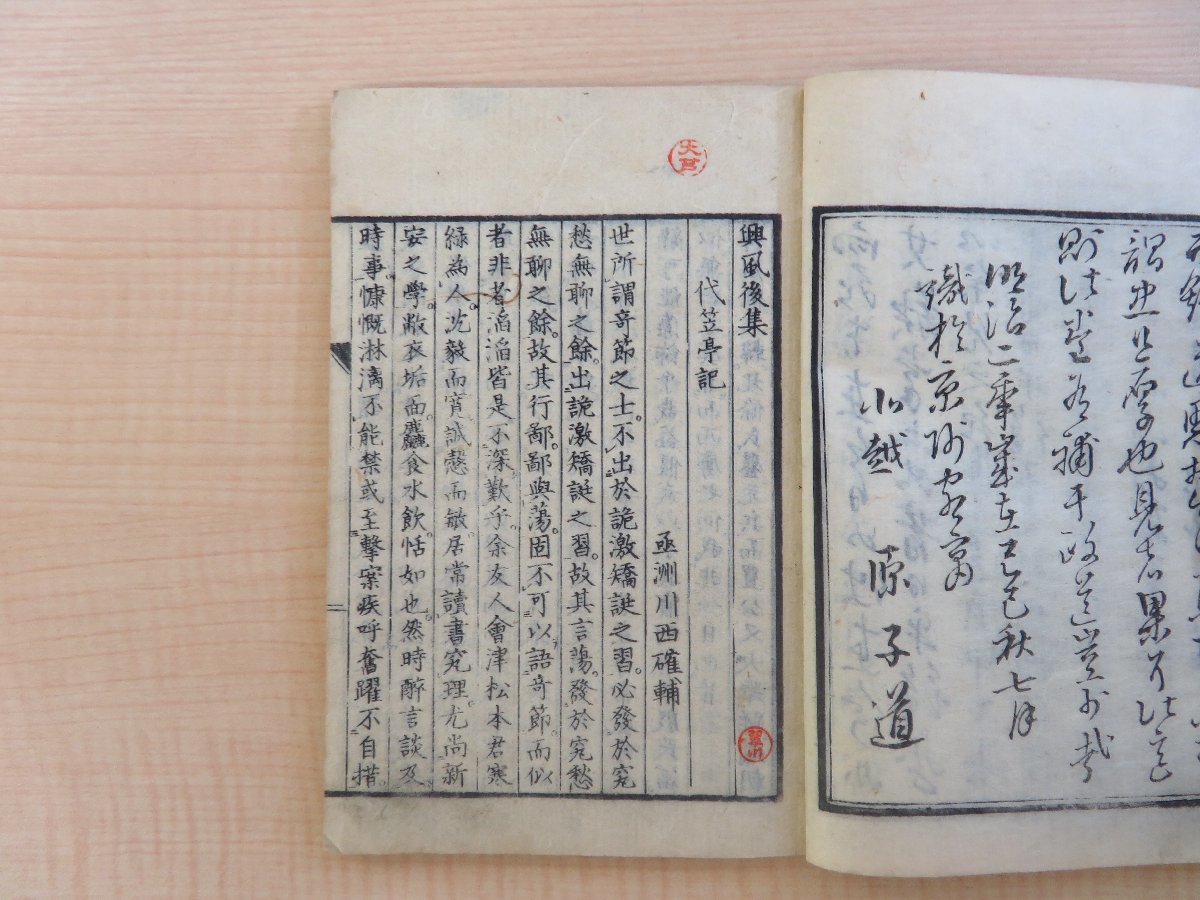 謂忠且厚也見者果以此言
則此書為補于政道豈小哉
明治二年歳在己巳秋七月
識於京師客寓
北越 原子道
興風後集
代笠亭記
亟洲川西確輔
世所謂奇節之士。不出於詭激矯誕之習。必發於窮
愁無聊之餘。出詭激矯誕之習。故其言蕩。發於窮愁
無聊之餘。故其行鄙。鄙與蕩。固不可以語奇節。而似
者非者滔滔皆是。不深歎乎。余友人會津松本君寒
緑為人。沈毅而寬。誠愨而敏。居常讀書究理。尤尚新
安之學。敝衣垢面。麤食水飲。恬如也。然時醉言談及
時事。慷慨淋漓。不能禁。或至擊案疾呼奮躍不自措。